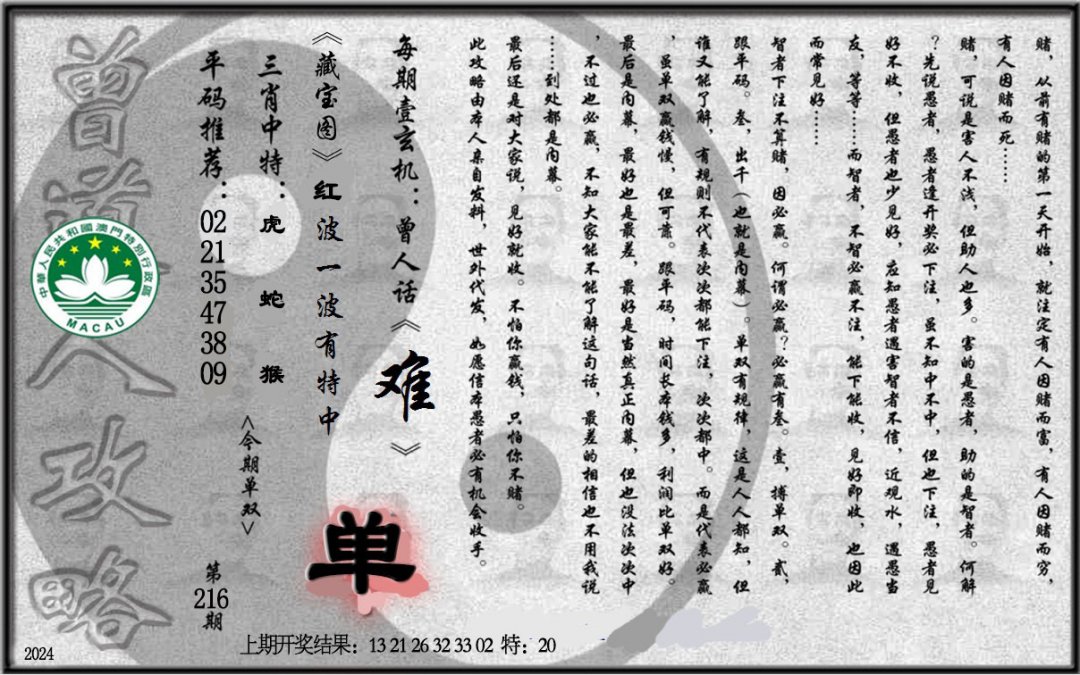 赌，从前有赌的第一天开始，就注定有人因赌而富，有人因赌而穷，
有人因赌而死……
赌，可说是害人不浅，但助人也多。害的是愚者，助的是智者。何解
？先说愚者，愚者逢开奖必下注，虽不知中不中，但也下注，愚者见
好不收，但愚者也少见好，应知愚者遇害智者不信，近观水，遇愚当
友，等等……而智者，不智必赢不注，能下能收，见好即收，也因此
而常见好……
智者下注不算赌，因必赢。何谓必赢？必赢有叁。壹，搏单双。贰，
跟平码。叁，出千（也就是内幕）。单双有规律，这是人人都知，但
谁又能了解，有规则不代表次次都能下注，次次都中。而是代表必赢
，虽单双赢钱慢，但可靠。跟平码，时间长本钱多，利润比单双好。
最后是内幕，最好也是最差，最好是当然真正内幕，但也没法次次中
，不过也必赢，不知大家能不能了解这句话，最差的相信也不用我说
……到处都是内幕。
最后还是对大家说，见好就收。不怕你赢钱，只怕你不赌。
此攻略由本人亲自发料，世外代发，如愿信本愚者必有机会收手。
每期壹玄机：曾人话《难》
《藏宝图》红波一波有特中
单
三肖中特：虎 蛇 猴
<今期单双>
平码推荐：02 21 35 47 38 09
第216期
曾道人攻略
中華人民共和國澳門特別行政區
MACAU
上期开奖结果：13 21 26 32 33 02 特：20
2024